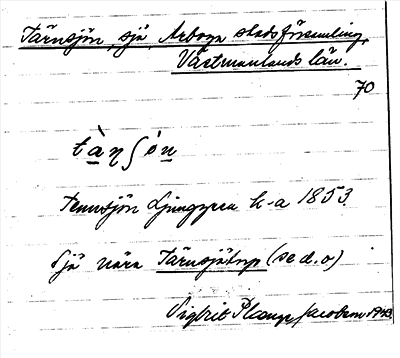 Tärnsjön, sjö, Arboga stadsförsamling,
Västmanlands län.
70
tàŋʃón
Tennsjön Ljunggren h-a 1853
Sjö nära Tärnsjötorp (se d.o)
Sigfrid Jacobsen 1943